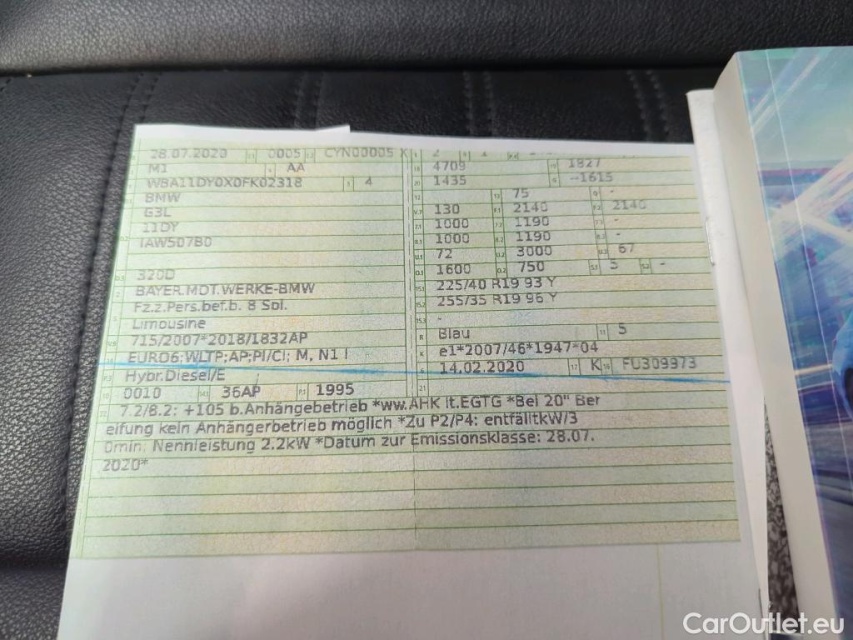 28.07.2020 0005 CYN00005 X
M1 AA 4709 1827
WBA11DY0X0FK02318 4 1435 -1615
BMW 75 -
G3L 130 2140 2140
11DY 1000 1190 -
IAW507B0 1000 1190 -
72 3000 67
320D 1600 750 5 -
BAYER.MOT.WERKE-BMW 225/40 R19 93 Y
Fz.z.Pers.bef.b. 8 Spl. 255/35 R19 96 Y
Limousine -
715/2007*2018/1832AP Blau 5
EURO6;WLTP;AP;PI/CI; M, N1 I e1*2007/46*1947*04
Hybr.Diesel/E 14.02.2020 K FU309973
0010 36AP 1995
7.2/8.2: +105 b.Anhängebetrieb *ww.AHK lt.EGTG *Bei 20" Ber
eifung kein Anhängerbetrieb möglich *Zu P2/P4: entfälltkW/3
0min. Nennleistung 2.2kW *Datum zur Emissionsklasse: 28.07.
2020*
CarOutlet.eu